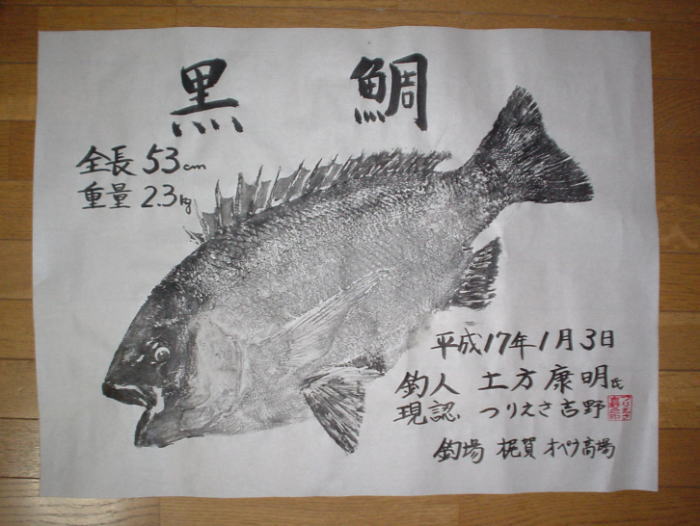 黒鯛
全長 53cm
重量 2.3kg
平成17年1月3日
釣人 土方康明氏
現認 つりえさ吉野
釣場 梶賀 オベラ高場